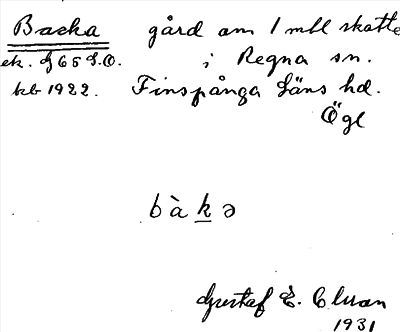 Backa gård om 1 mtl skatte
ek. J 65 S.O. i Regna sn.
kb 1922. Finspånga läns hd.
Ögl
bàkə
Gustaf E.
1931